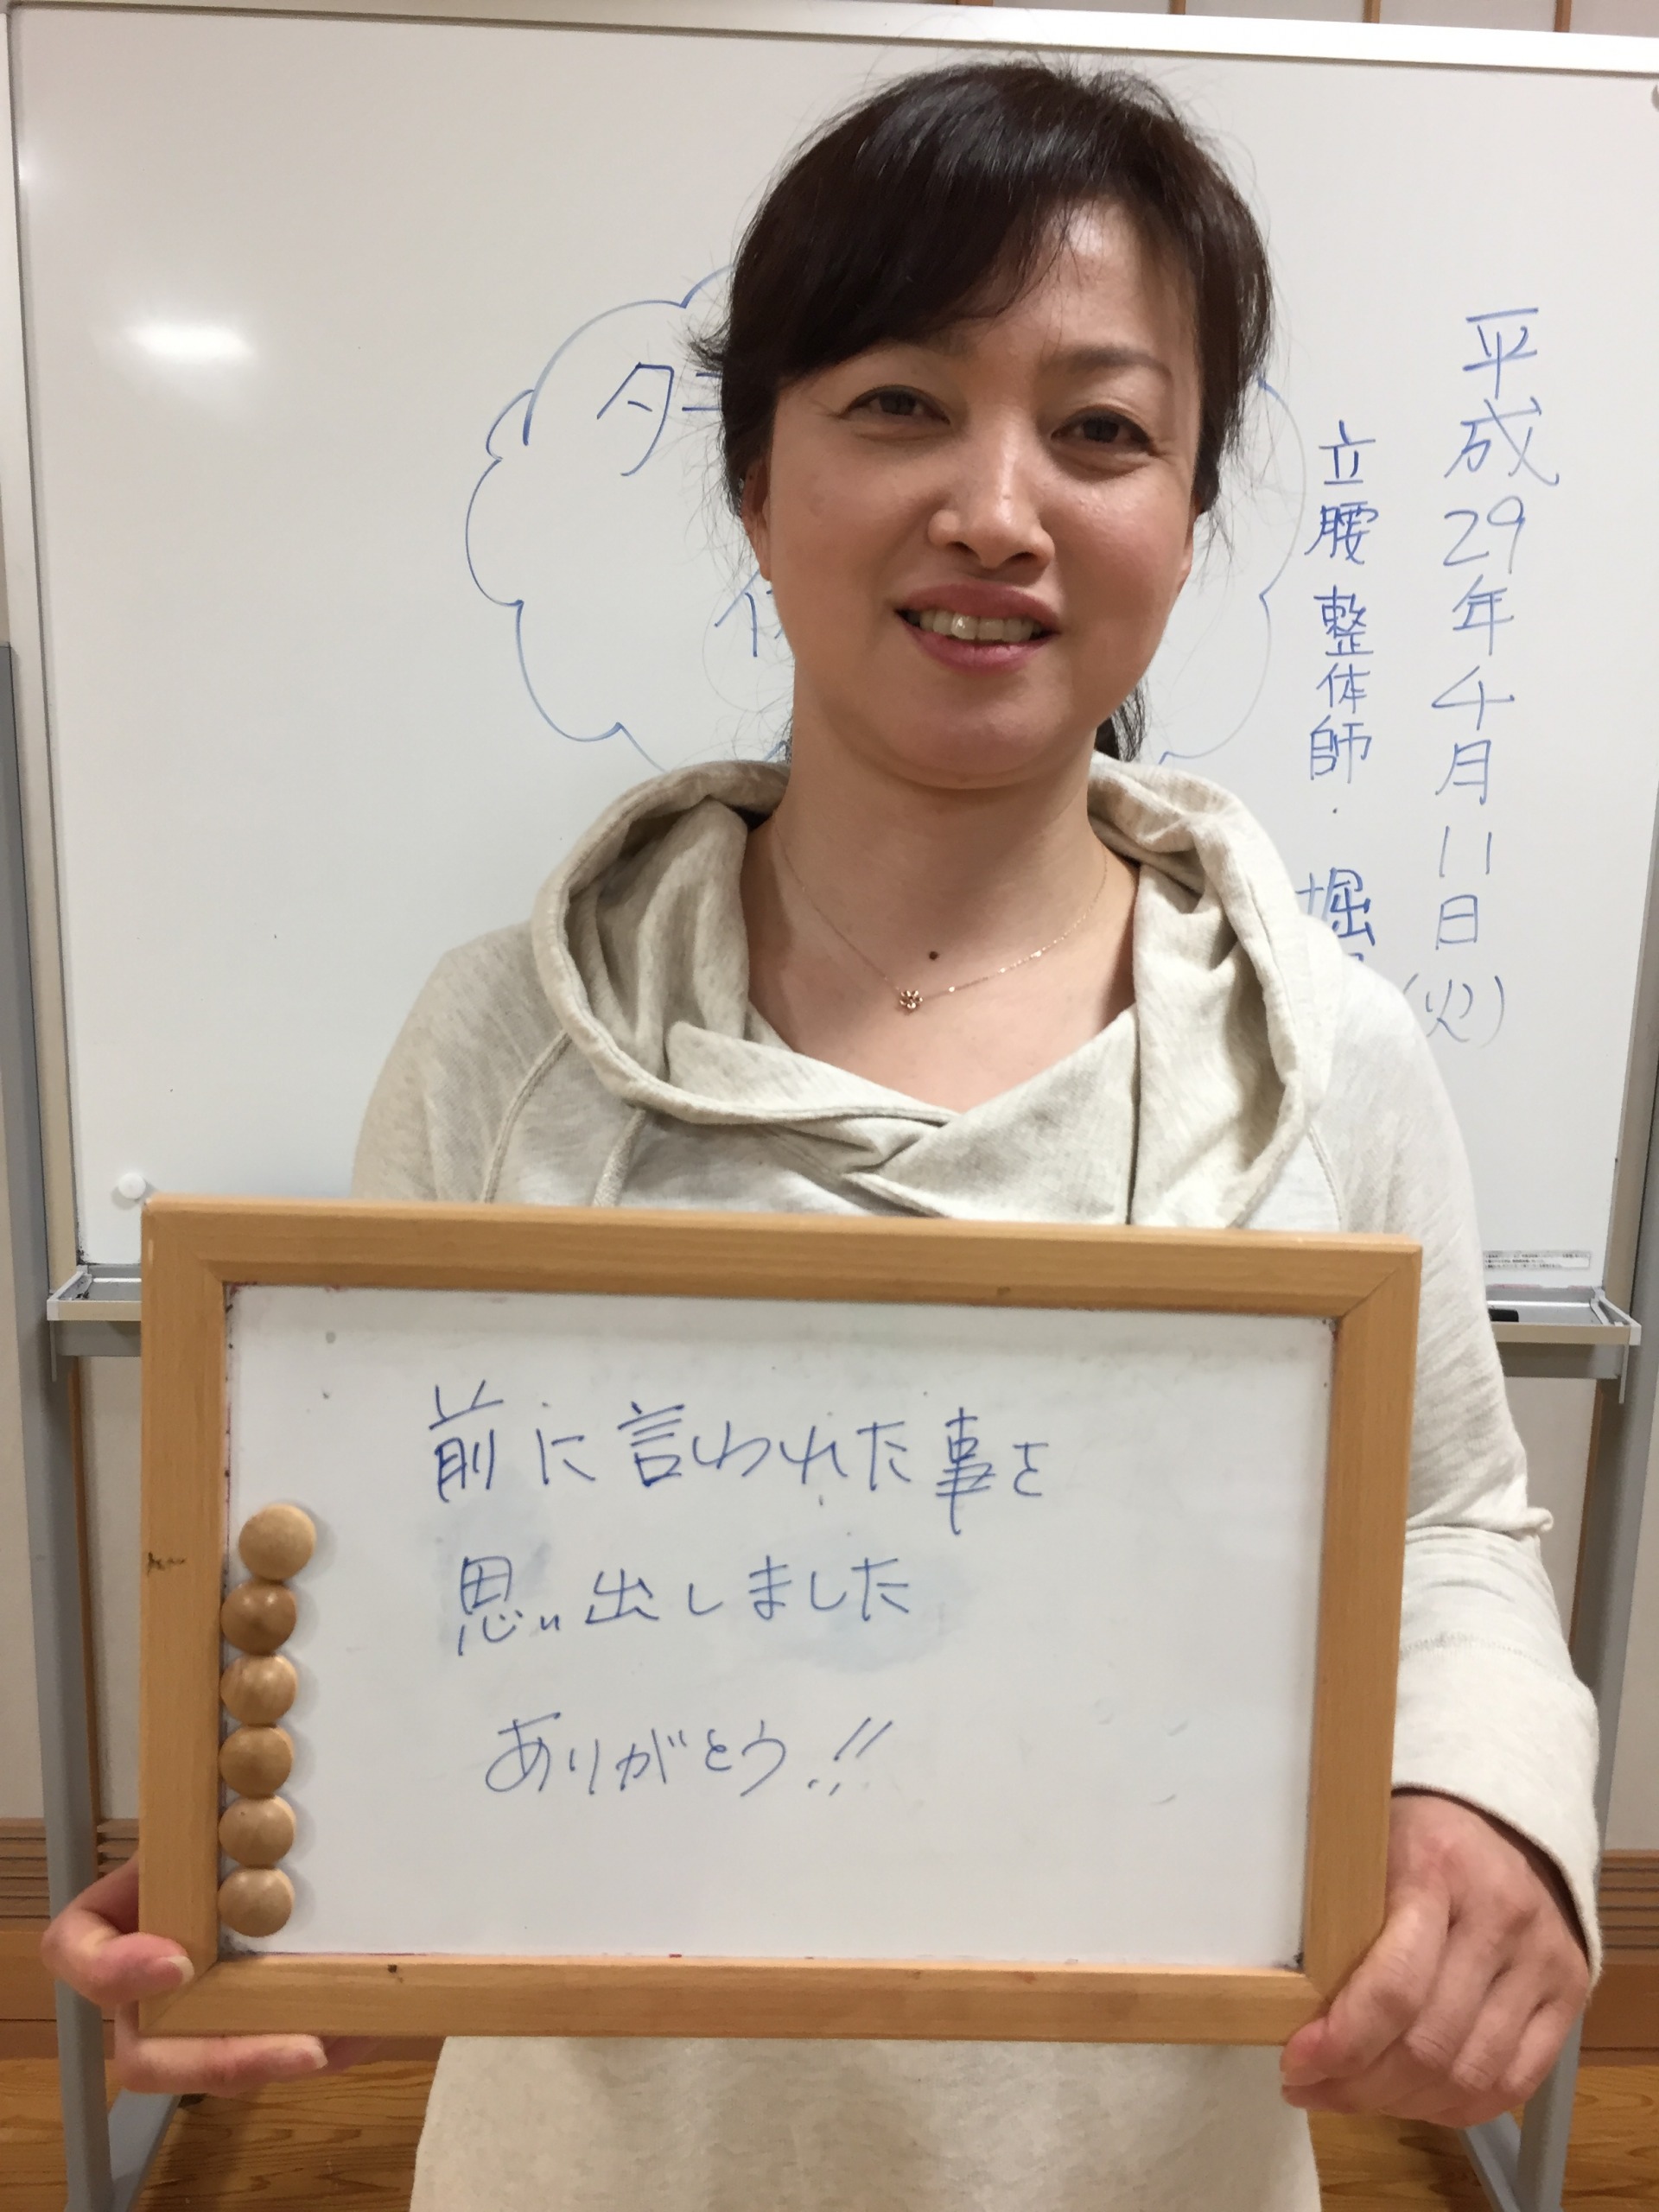 平成29年4月11日(火)
立腰整体師・堀
タニ
体
前に言われた事を
思い出しました
ありがとう!!